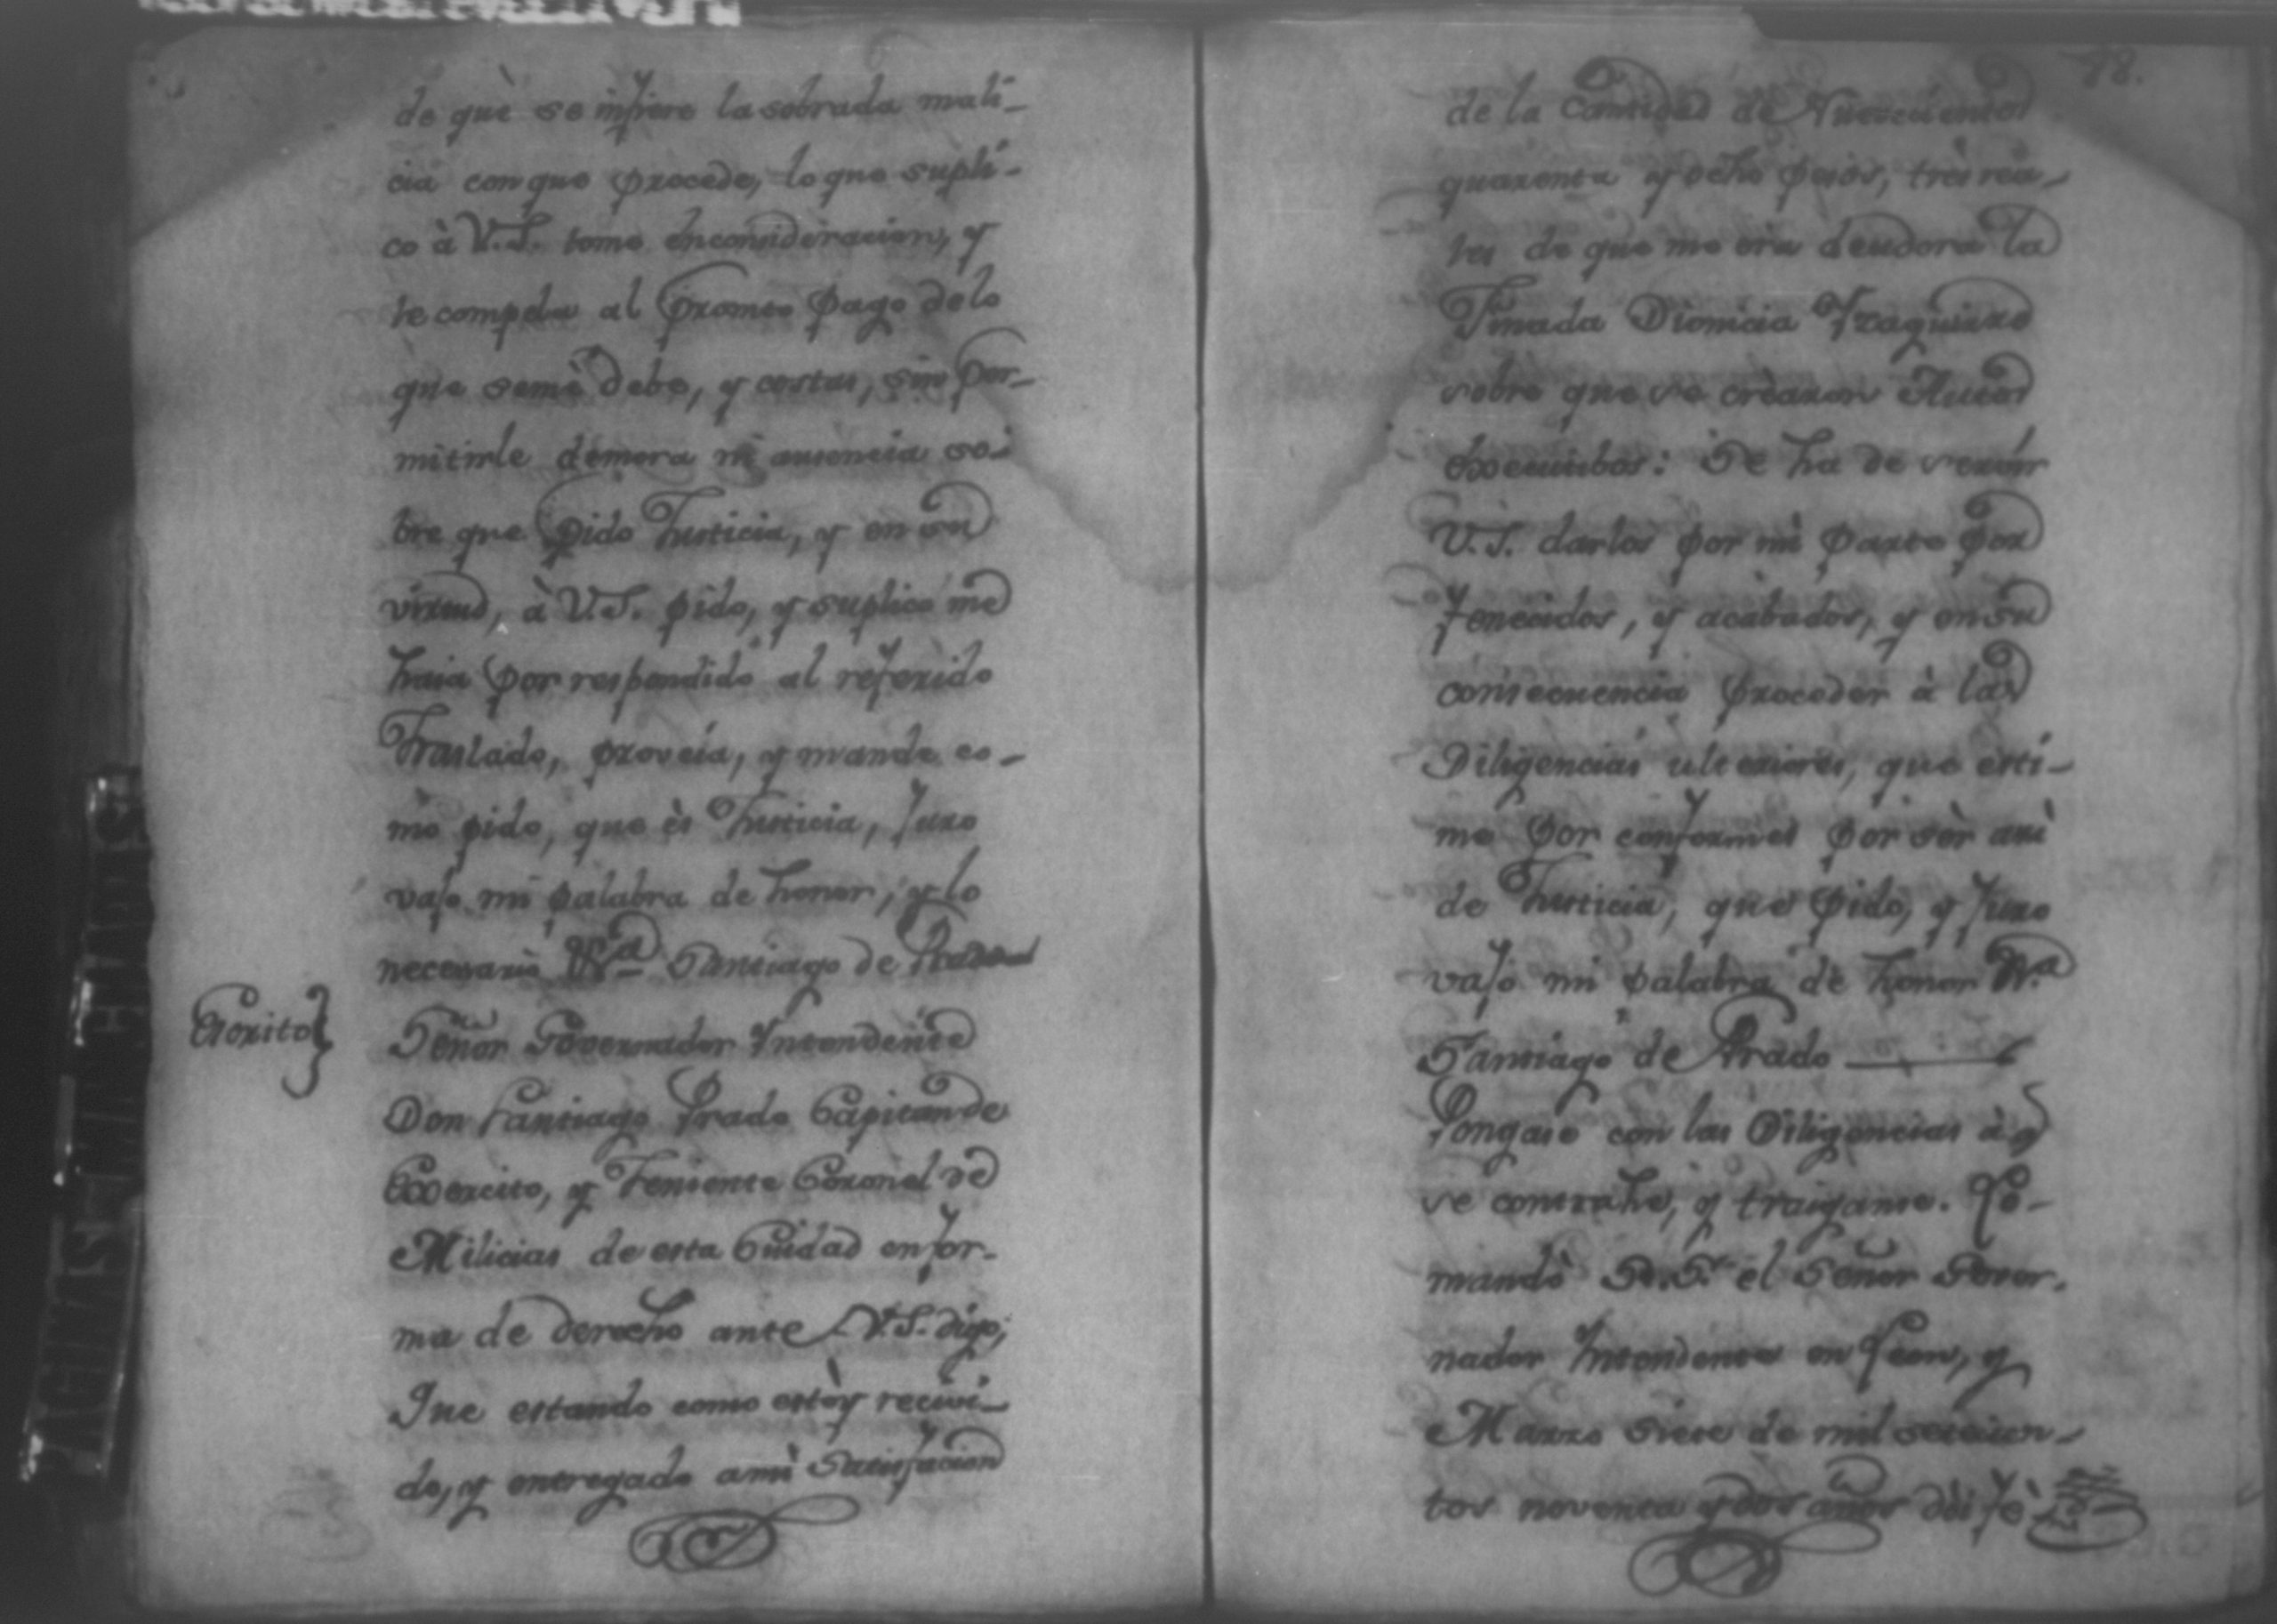 de què se infiere la sobrada mali-
cia con que procede, lo que supli-
co à V.S. tome en consideracion, y
le compela al promto pago de lo
que se mè debe, y costas, sin per-
mitirle demora ni ausencia so-
bre que pido Justicia, y en su
virtud, à V.S. pido, y suplico me
haia por respondido al referido
Traslado, proveia, y mande co-
mo pido, que ès Justicia, Juro
vajo mi palabra de honor, y lo
necesario Vª Santiago de Prado
Escrito}
Señor Governador Yntendente
Don Santiago Prado Capitan de
Exercito, y Teniente Coronel de
Milicias de esta Ciudad en for-
ma de derecho ante V.S. digo,
Que estando como estòy recivi-
do, y entregado a mi Satisfacion
78.
de la Cantidad de Nuevecientos
quarenta y ocho pesos, tres rea-
les de que me era deudora la
Finada Dionicia Yzaguirre
sobre que se crèaron Autos
Executibos: Se ha de servir
V.S. darlos por mi parte por
fenecidos, y acabados, y en su
consecuencia proceder à las
Diligencias ulteriores, que esti-
me por conformes por sèr asi
de Justicia, que pido, y Juro
vajo mi palabra de honor Vª
Santiago de Prado
Pongase con las Diligencias à q
se contrahe, y traiganse. Lo
mandò S.S. el Señor Gover-
nador Yntendente en Leon, y
Marzo siete de mil setecien-
tos noventa y dos años dòi fè